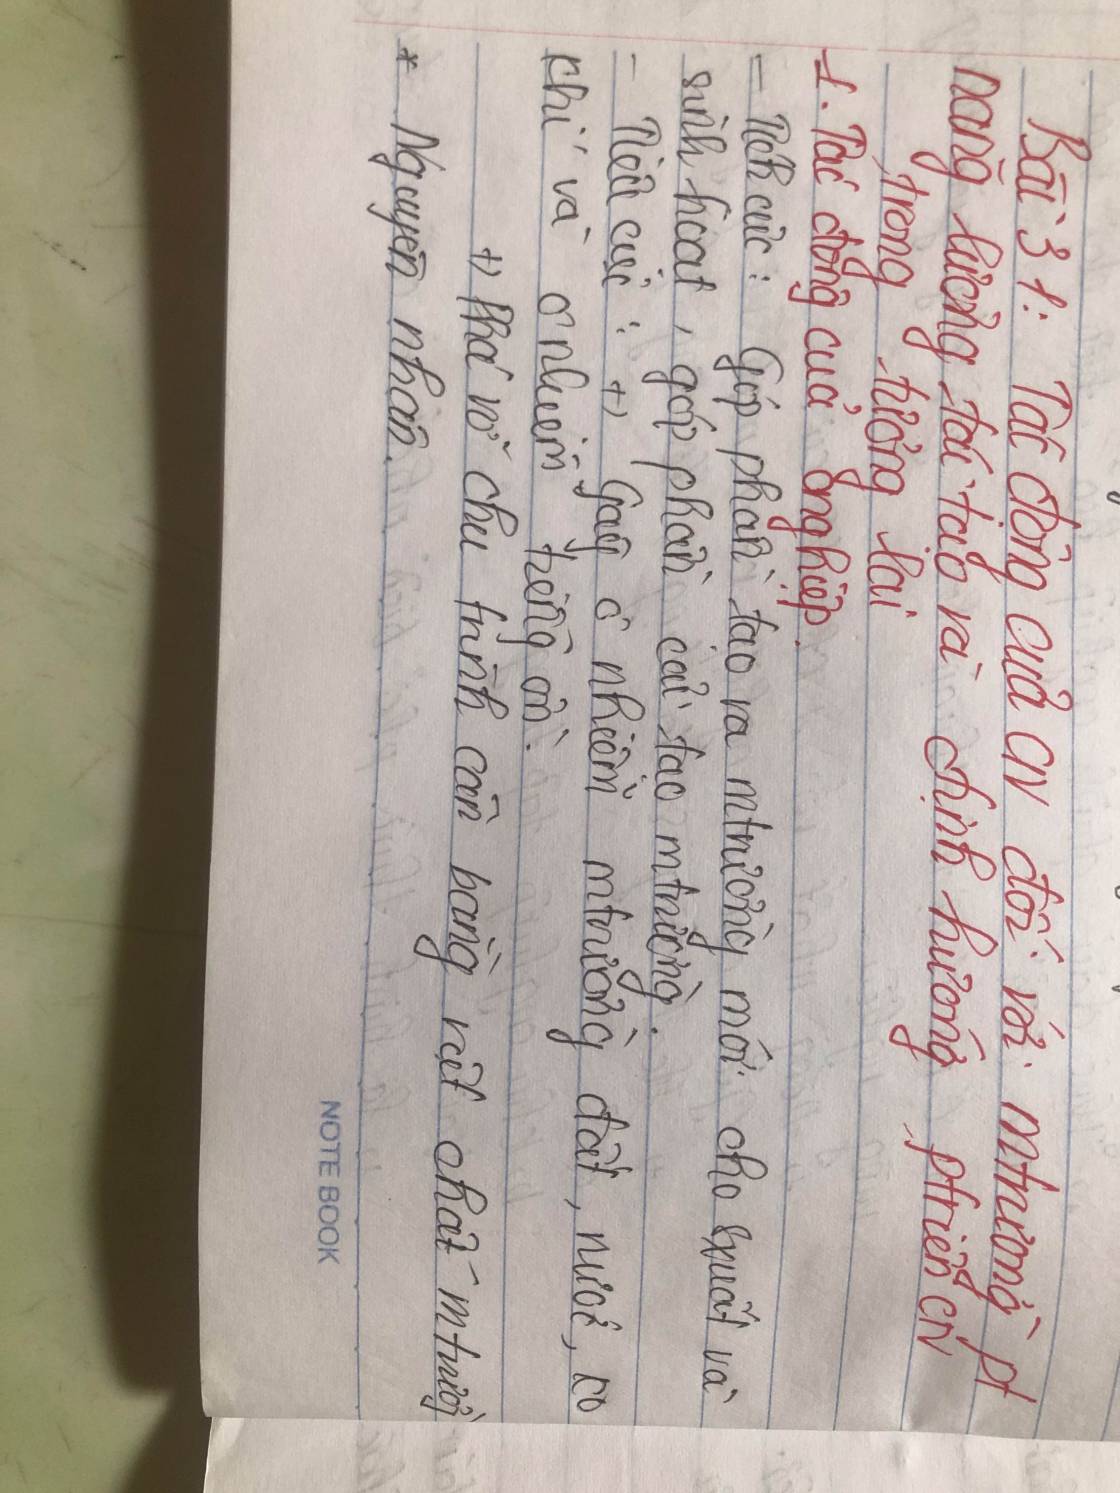 Bài 31: Tác động của CN đối với mtrường pt
năng lượng tái tạo và định hướng ptriển CN
trong tương lai
1. Tác động của ngành nghiệp.
- Tích cực: Góp phần tạo ra mtrường mới cho sxuất và
sinh hoạt, góp phần cải tạo mtrường.
- Tiêu cực: +) Gây ô nhiễm mtrường đất, nước, ko
khí và ô nhiễm tiếng ồn.
+) Phá vỡ chu trình cân bằng vật chất - mtrườ
* Nguyên nhân.
NOTE BOOK